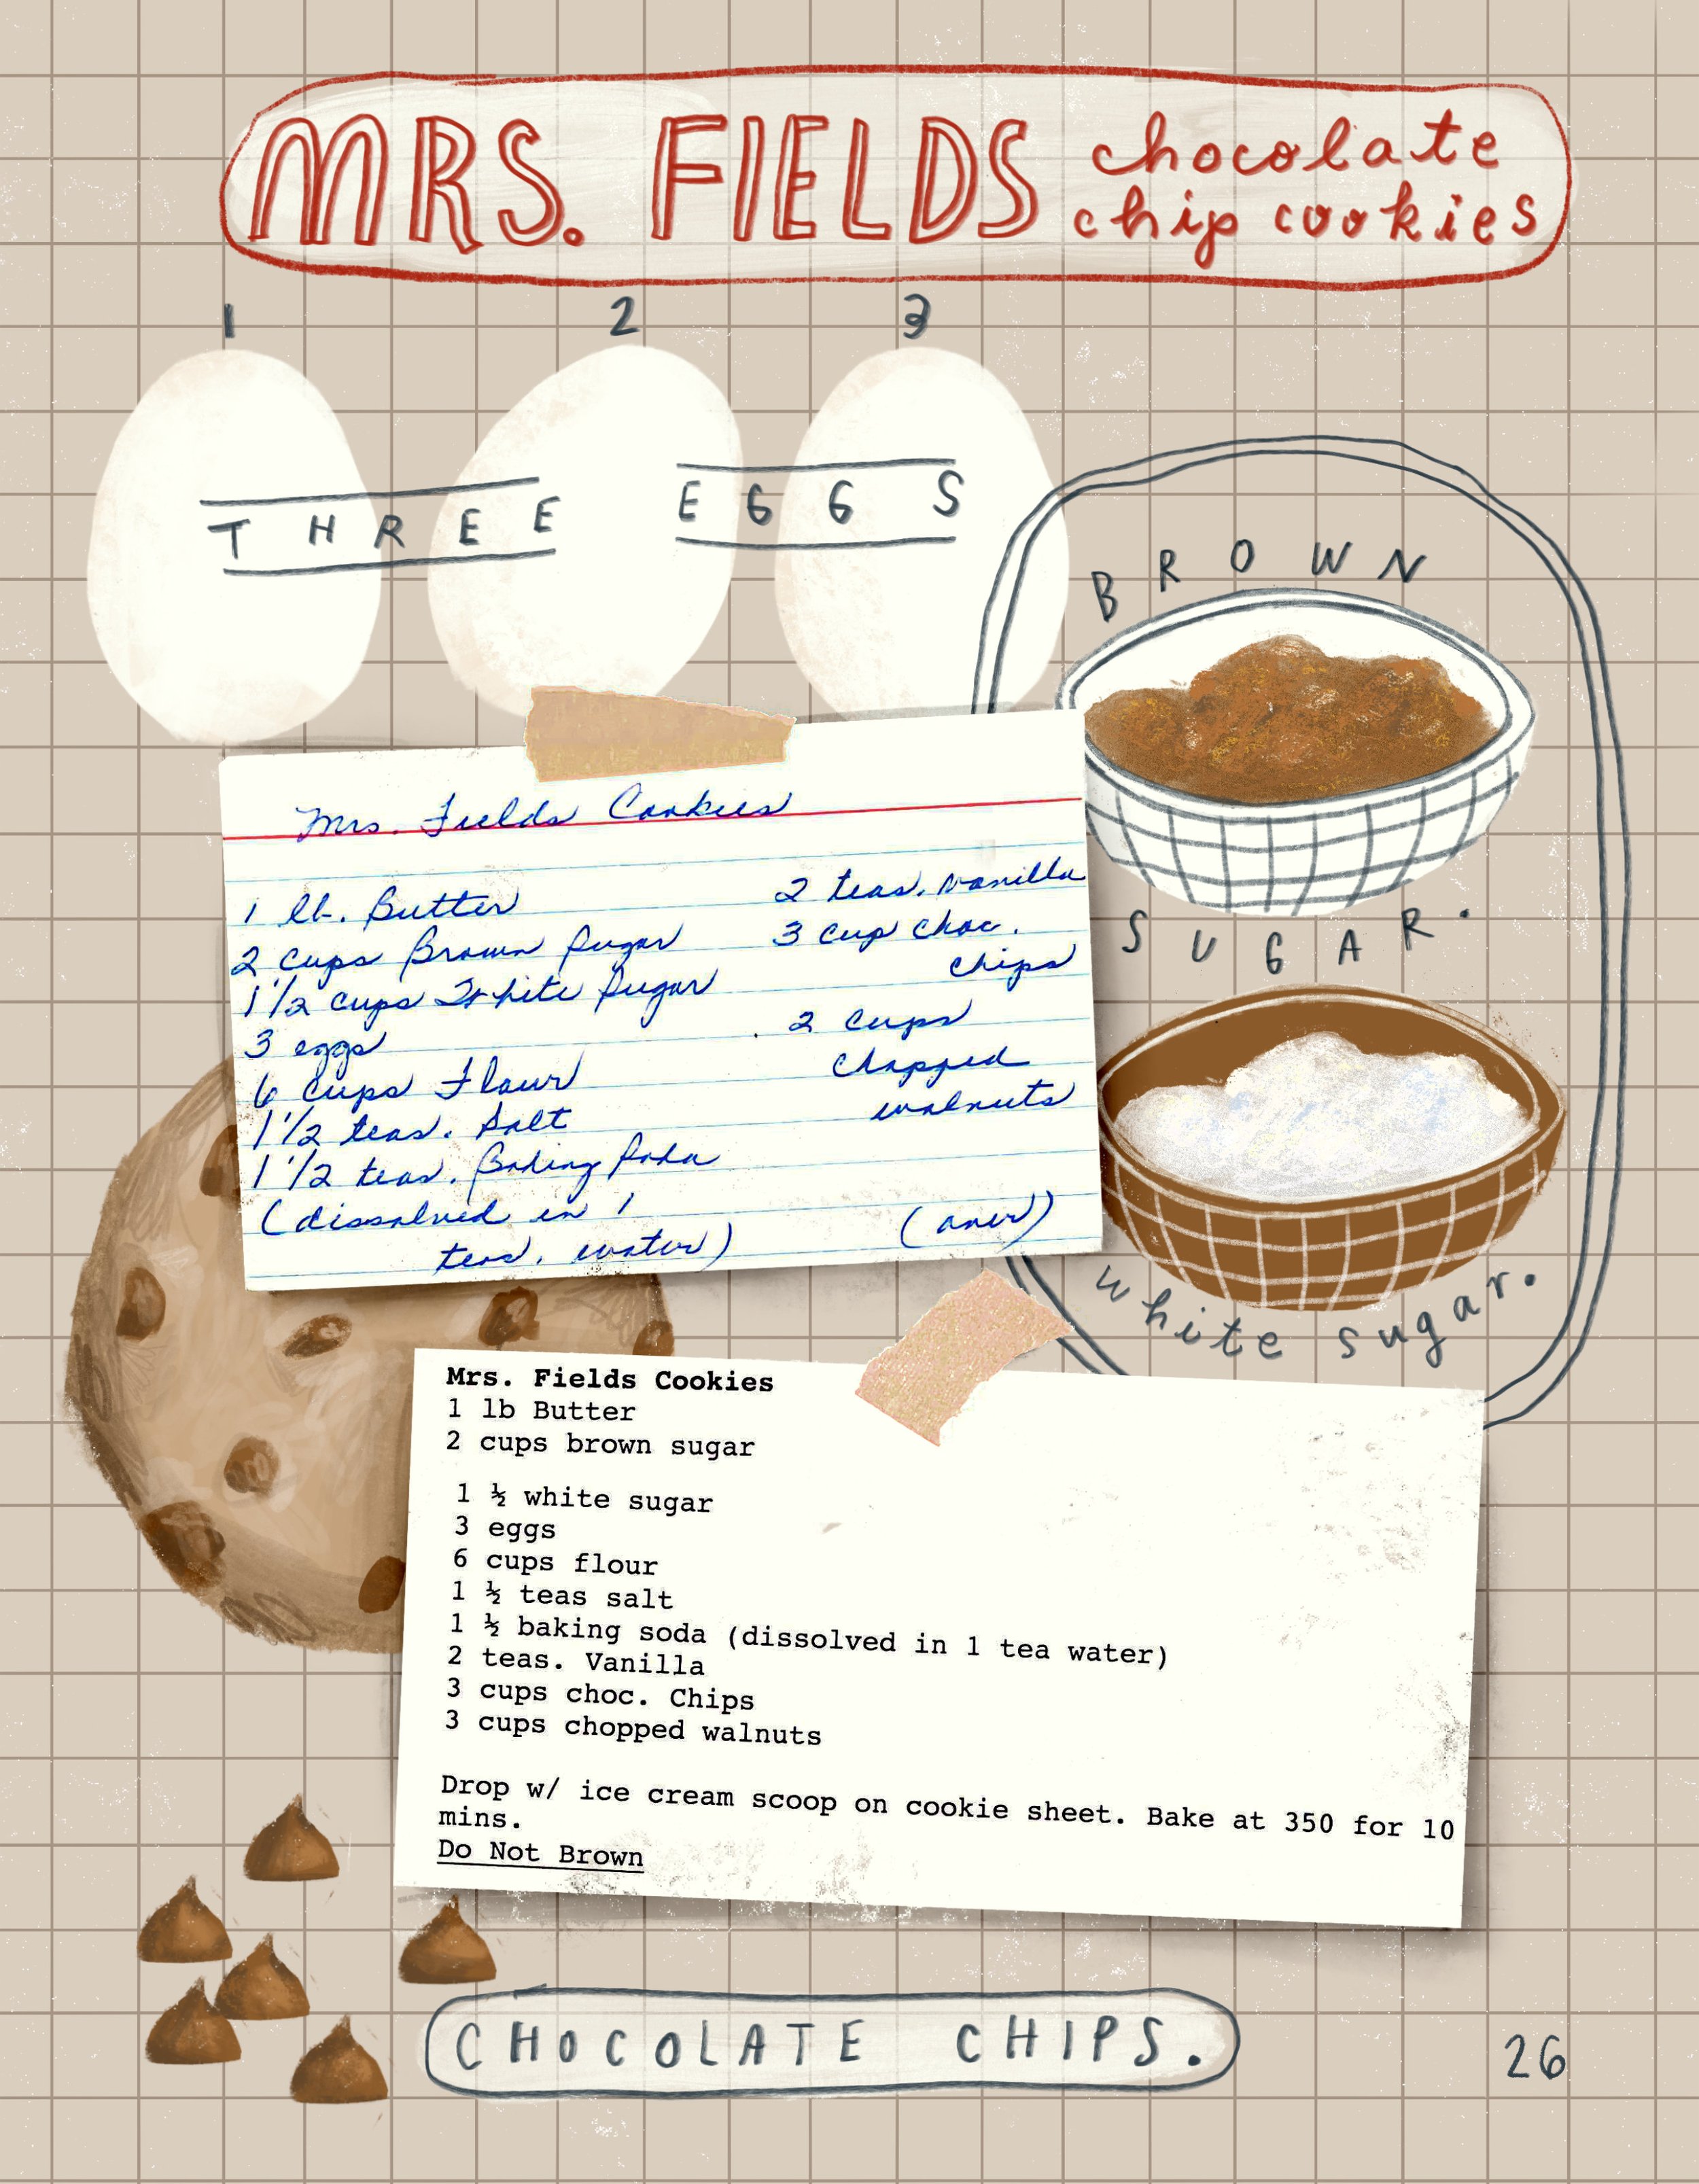 MRS. FIELDS chocolate
chip cookies
1 2 3
THREE EGGS
BROWN
SUGAR.
white sugar.
Mrs. Fields Cookies
1 lb. Butter
2 cups Brown Sugar
1 1/2 cups White Sugar
3 eggs
6 cups Flour
1 1/2 teas. Salt
1 1/2 teas. Baking Soda
(dissolved in 1
teas. water)
2 teas. vanilla
3 cup choc.
chips
2 cups
chopped
walnuts
(over)
Mrs. Fields Cookies
1 lb Butter
2 cups brown sugar
1 ½ white sugar
3 eggs
6 cups flour
1 ½ teas salt
1 ½ baking soda (dissolved in 1 tea water)
2 teas. Vanilla
3 cups choc. Chips
3 cups chopped walnuts
Drop w/ ice cream scoop on cookie sheet. Bake at 350 for 10
mins.
Do Not Brown
CHOCOLATE CHIPS.
26